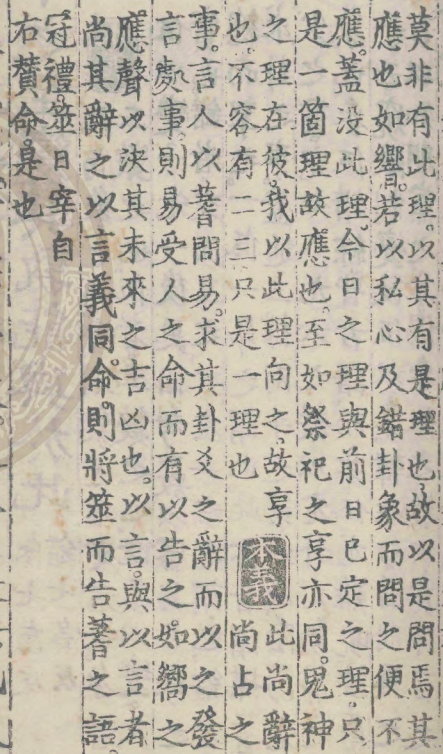 莫非有此理。以其有是理也。故以是問焉其
應也如響。若以私心及錯卦象而問之便不
應。蓋没此理。今日之理與前日已定之理。只
是一箇理故應也。至如祭祀之享亦同。鬼神
之理在彼。我以此理向之。故享
也。不容有二三只是一理也
本義
此尚辭
尚占之
事。言人以蓍問易。求其卦爻之辭而以之發
言處事。則易受人之命而有以告之。如嚮之
應聲以決其未來之吉凶也。以言。與以言者
尚其辭之以言義同。命。則將筮而告蓍之語。
冠禮。筮日宰自
右贊命。是也